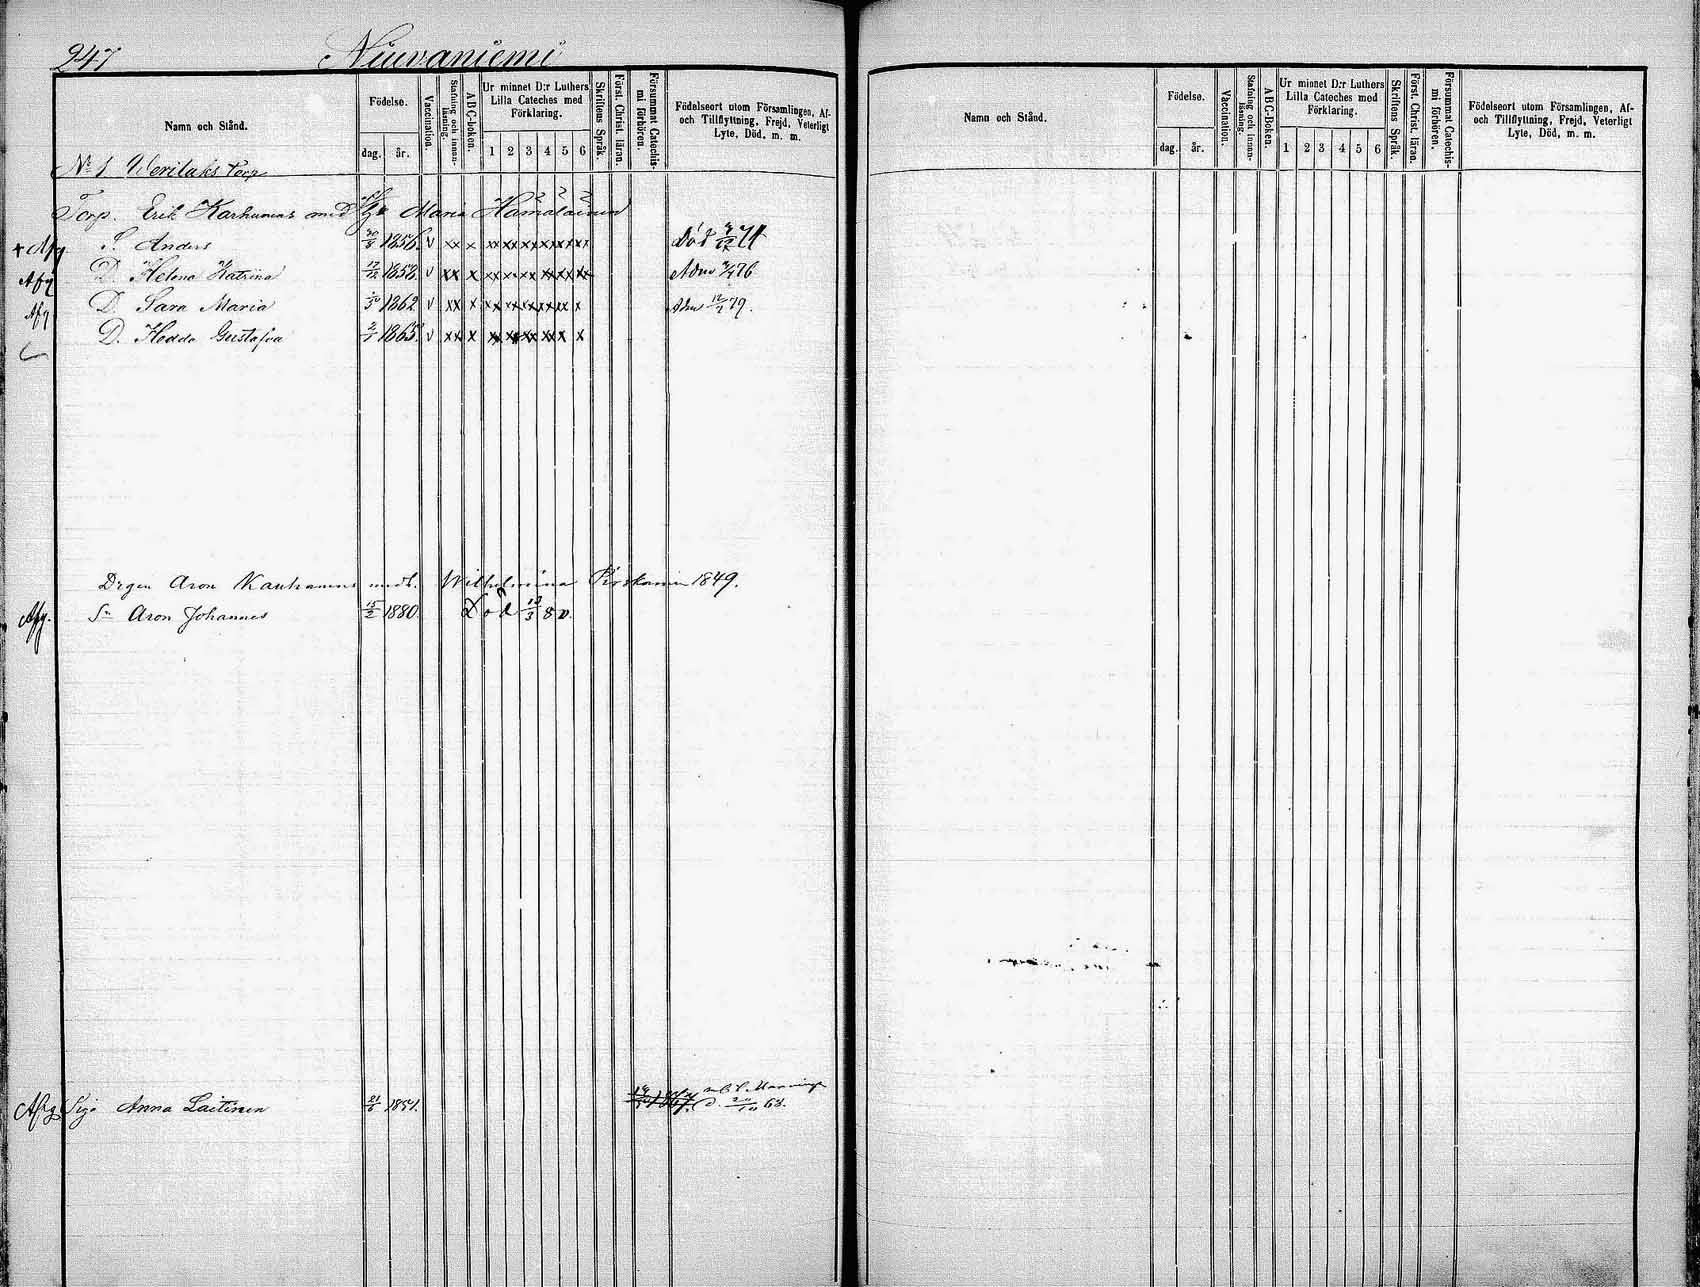 247 Niuvaniemi
Namn och Stånd.
Födelse.
dag. år.
Vaccination.
Stafning och innan-läsning.
ABC-boken.
Ur minnet D:r Luthers Lilla Cateches med Förklaring.
1 2 3 4 5 6
Skriftens Språk.
Först. Christ. läran.
Försummat Catechis-mi förhören.
Födelseort utom Församlingen, Af- och Tillflyttning, Frejd, Veterligt Lyte, Död, m. m.
No 1 Weritaks torp
Torp. Erik Karhunens med H Maria Hämäläinen
+ Afg. S. Anders 30/8 1856. v xx x xx xx xx xx xx xx Död 74
Afg D. Helena Katrina 17/12 1858 v xx x xx xx xx xx xx xx Adm 76
Afg D. Sara Maria 1862 v xx x xx xx xx xx x x Adm 79.
D. Hedda Gustafva 2/7 1865. v xx x xx xx xx xx x x
Drgen Aron Kauhanens medh. Wilhelmina 1849.
Afg. Sn Aron Johannes 15/2 1880. Död 13/3 80.
Afg Anna Laitinen 21/6 1851. 1867. d. 20/10 68.
Namn och Stånd.
Födelse.
dag. år.
Vaccination.
Stafning och innan-läsning.
ABC-boken.
Ur minnet D:r Luthers Lilla Cateches med Förklaring.
1 2 3 4 5 6
Skriftens Språk.
Först. Christ. läran.
Försummat Catechis-mi förhören.
Födelseort utom Församlingen, Af- och Tillflyttning, Frejd, Veterligt Lyte, Död, m. m.